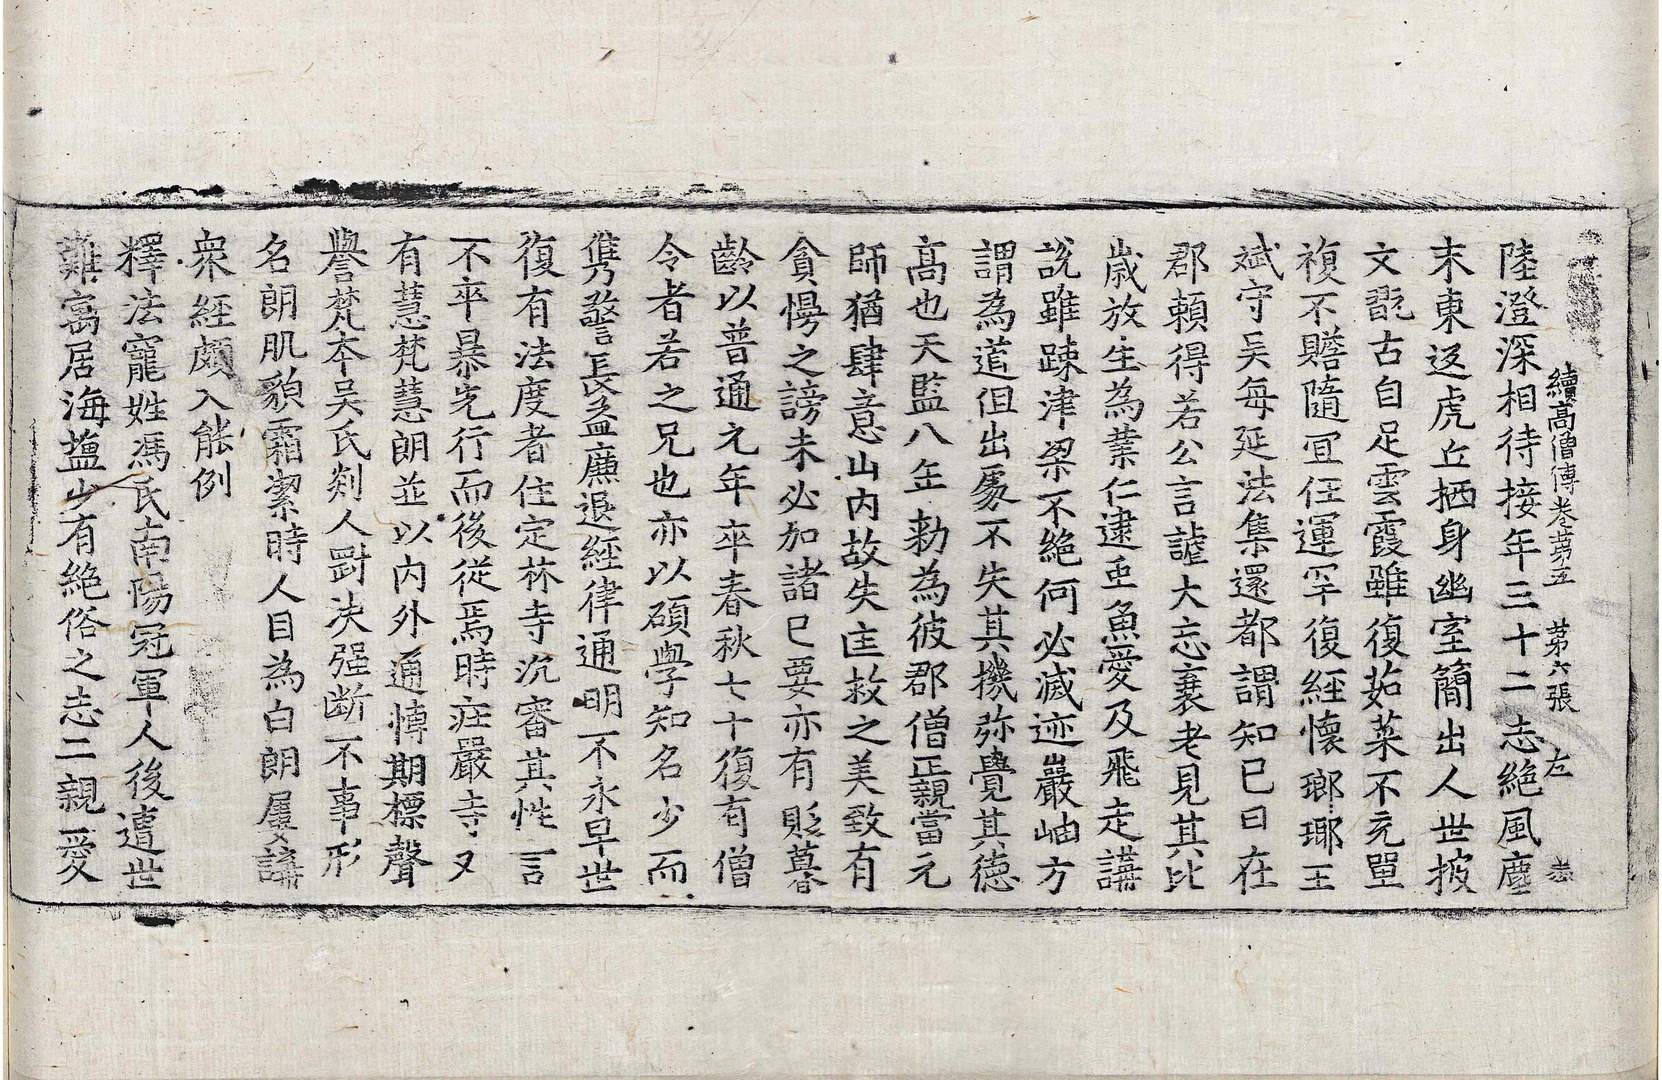 續高僧傳卷第五 第六張 左
陸澄深相待接年三十二志絶風塵
末東返虎丘栖身幽室簡出人世披
文翫古自足雲霞雖復茹菜不充單
複不贍隨宜任運罕復經懷瑯瑘王
斌守吳每延法集還都謂知己曰在
郡賴得若公言謔大忘衰老見其比
歳放生為業仁逮䖝魚愛及飛走講
説雖踈津梁不絶何必滅迹巖岫方
謂為道但出處不失其機弥覺其德
髙也天監八年勑為彼郡僧正親當元
師猶肆意山内故失匡救之美致有
貪慢之謗未必加諸已要亦有貶暮
齡以普通元年卒春秋七十復有僧
令者若之兄也亦以碩學知名少而
儁警長益廉退經律通明不永早世
復有法度者住定林寺沉審其性言
不卒暴先行而後従焉時莊嚴寺又
有慧梵慧朗並以内外通博期標聲
譽梵本吳氏剡人對决强断不事形
名朗肌貌霜潔時人目為白朗屢講
衆經頗入能例
釋法寵姓馮氏南陽冠軍人後遭世
難寓居海塩少有絶俗之志二親愛